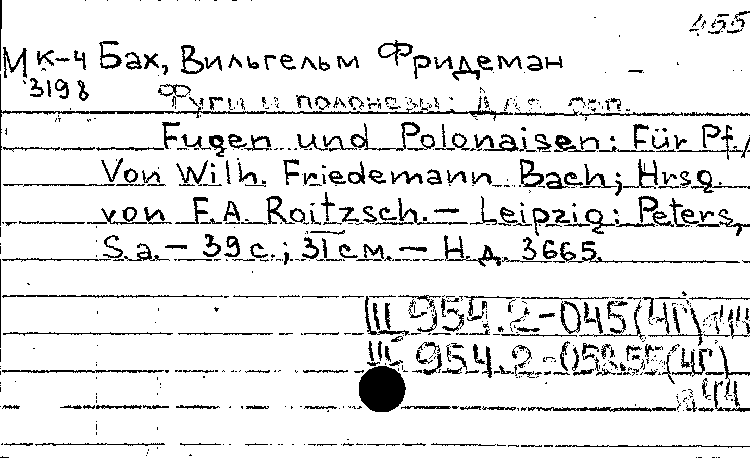 455
МК-4 Бах, Вильгельм Фридеман
3198
Фуги и полонезы: Для фп.
Fugen und Polonaisen: Für Pf./
Von Wilh. Friedemann Bach; Hrsg.
von F.A. Roitzsch. — Leipzig: Peters,
S.a. — 39 с.; 31 см. — Н.д. 3665.
Ш 954.2-045(4Г)
Ш 954.2-058.55(4Г)